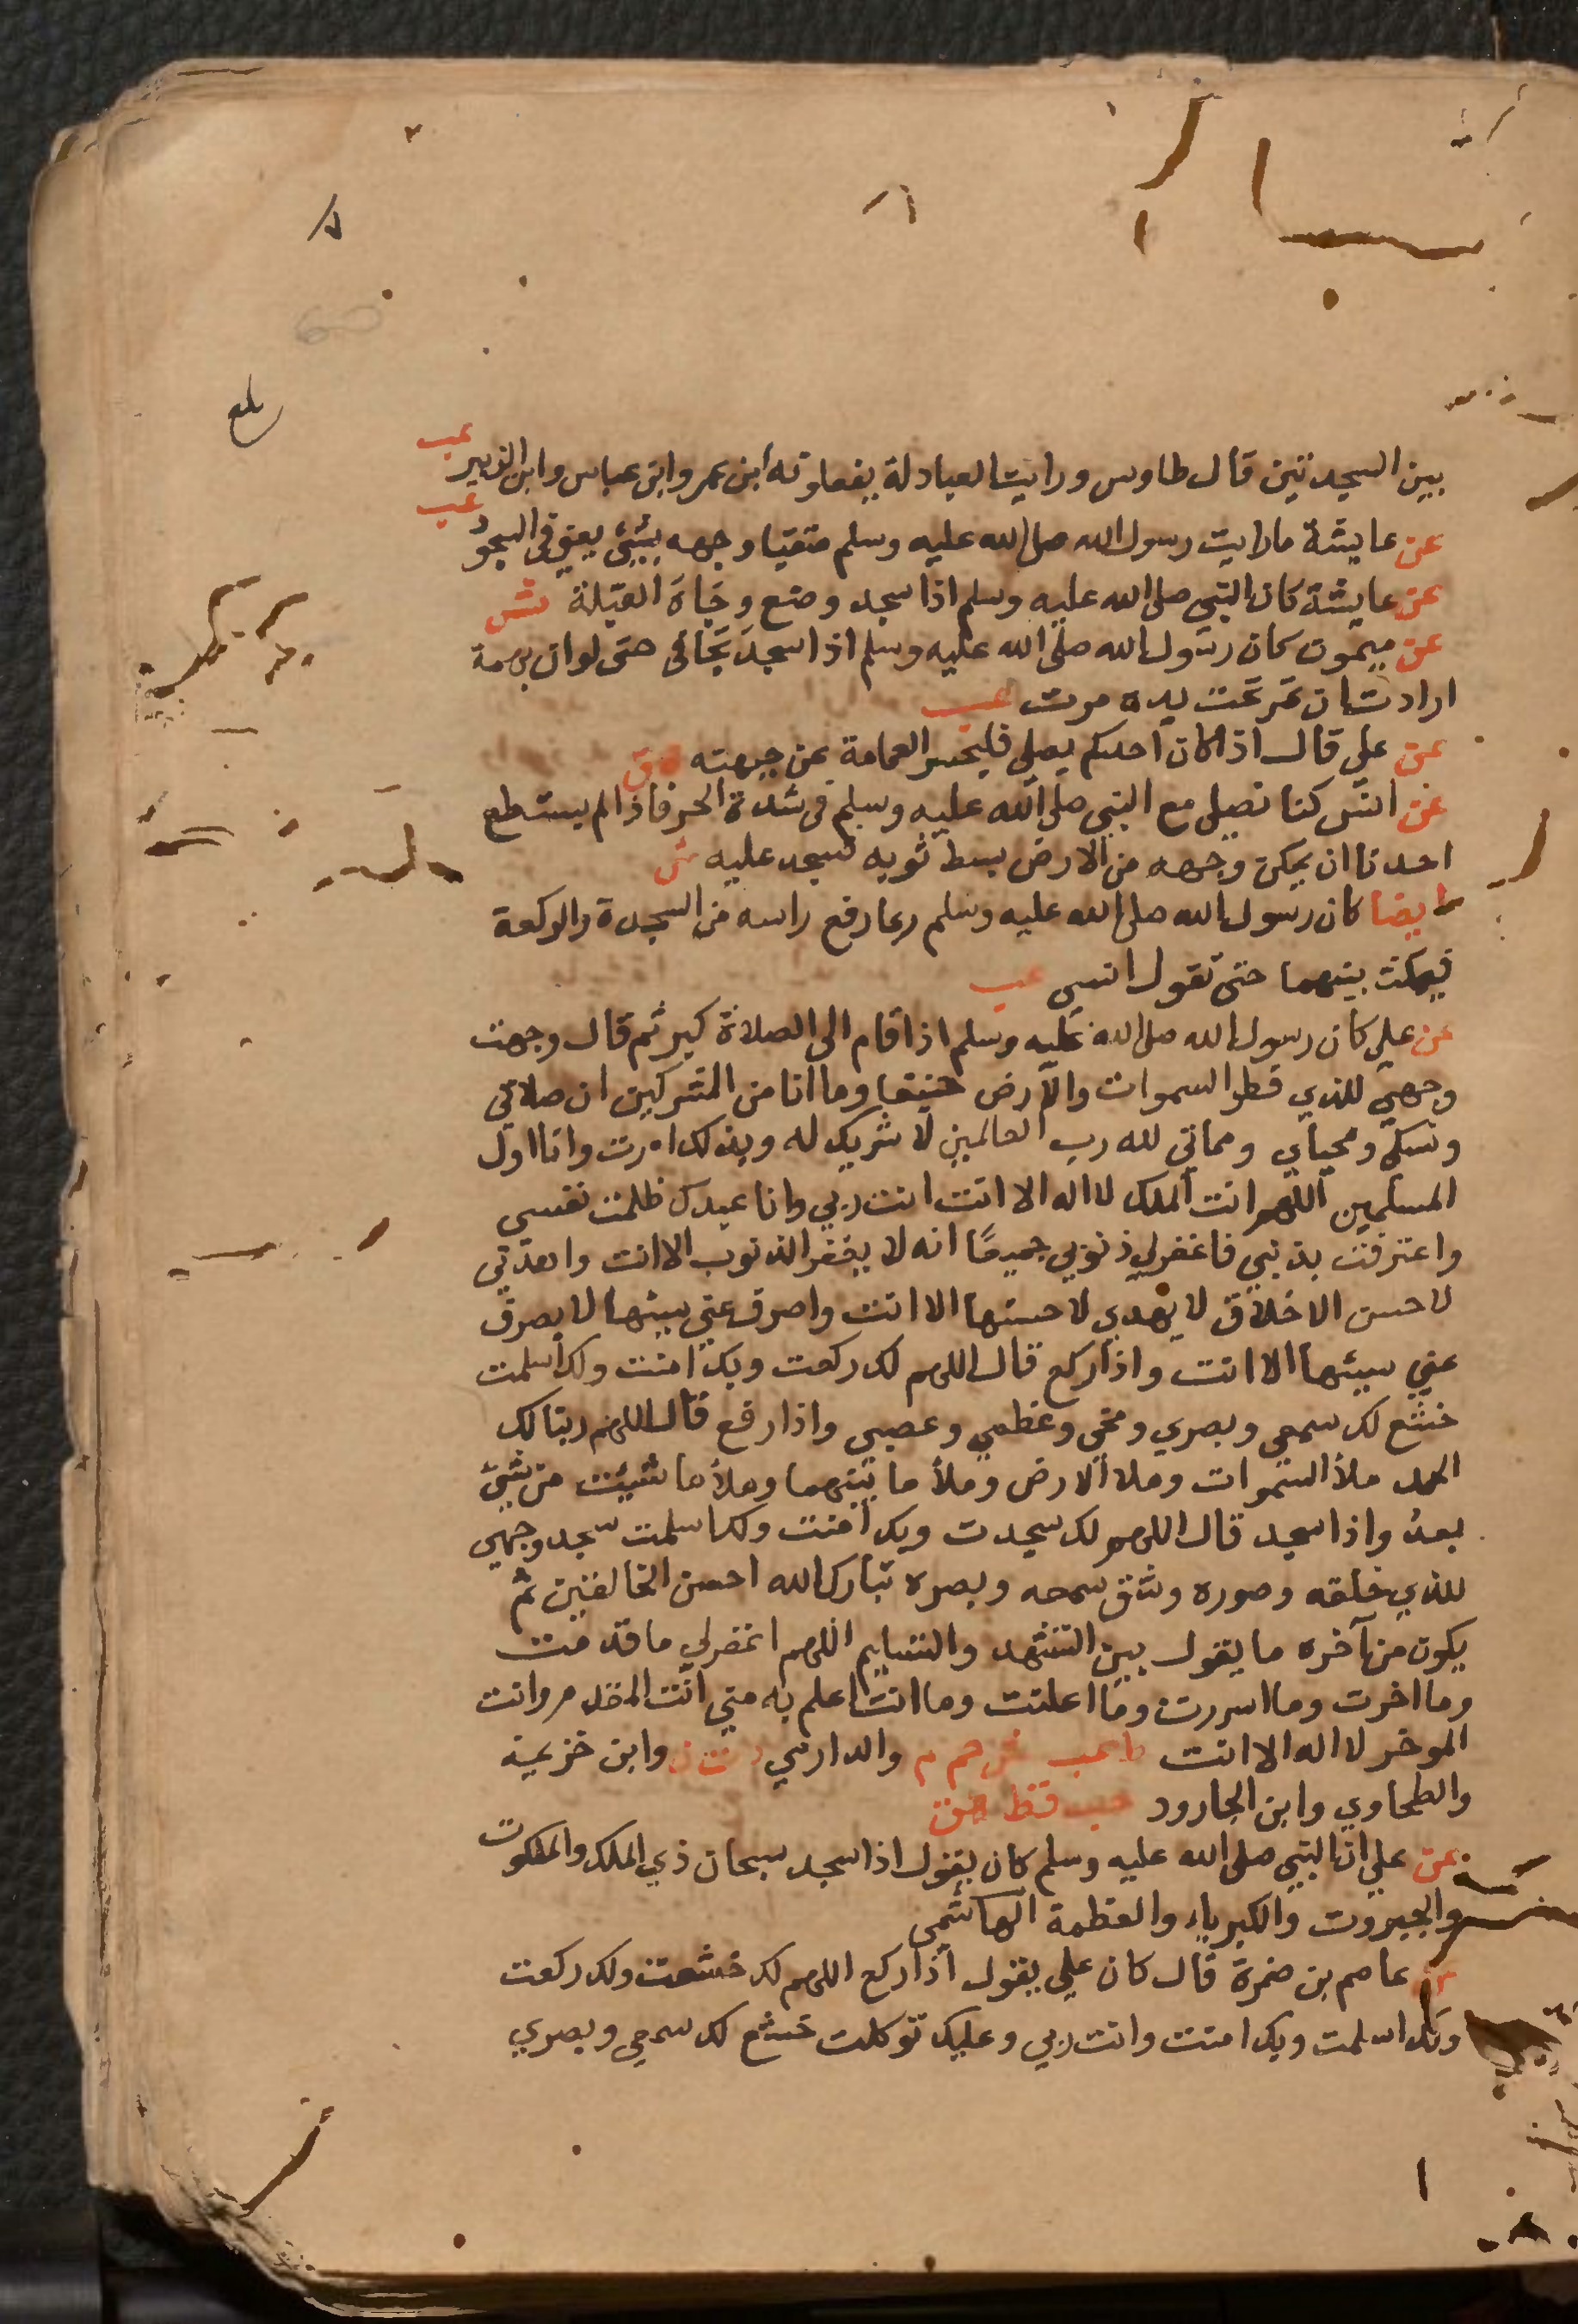 بلغ
بين السجدتين قال طاوس ورايت العبادلة يفعلونه ابن عمر وابن عباس وابن الزبير عب
عن عايشة مارايت رسول الله صلى الله عليه وسلم متقيا وجهه بشئ يعني في السجود عب
عن عايشة كان النبي صلى الله عليه وسلم اذا سجد وضع وجاه القبلة ش
عن ميمون كان رسول الله صلى الله عليه وسلم اذا سجد تجافى حتى لو ان بهمة
ارادت ان تمر تحت يده مرت عب
عن علي قال اذا كان احدكم يصلي فليحسر العمامة عن جبهته ق
عن انس كنا نصلي مع النبي صلى الله عليه وسلم في شدة الحر فاذا لم يستطع
احدنا ان يمكن وجهه من الارض بسط ثوبه فسجد عليه ش
ايضا كان رسول الله صلى الله عليه وسلم ربما رفع راسه من السجدة والركعة
فيمكث بينهما حتى نقول انسي عب
عن علي كان رسول الله صلى الله عليه وسلم اذا قام الى الصلاة كبر ثم قال وجهت
وجهي للذي فطر السموات والارض حنيفا وما انا من المشركين ان صلاتي
ونسكي ومحياي ومماتي لله رب العالمين لا شريك له وبذلك امرت وانا اول
المسلمين اللهم انت الملك لا اله الا انت انت ربي وانا عبدك ظلمت نفسي
واعترفت بذنبي فاغفرلي ذنوبي جميعا انه لا يغفر الذنوب الا انت واهدني
لاحسن الاخلاق لا يهدي لاحسنها الا انت واصرف عني سيئها لا يصرف
عني سيئها الا انت واذا ركع قال اللهم لك ركعت وبك امنت ولك اسلمت
خشع لك سمعي وبصري ومخي وعظمي وعصبي واذا رفع قال اللهم ربنا لك
الحمد ملأ السموات وملا الارض وملأ ما بينهما وملأ ما شيئت من شئ
بعد واذا سجد قال اللهم لك سجدت وبك امنت ولك اسلمت سجد وجهي
للذي خلقه وصوره وشق سمعه وبصره تبارك الله احسن الخالقين ثم
يكون من آخره ما يقول بين التشهد والتسليم اللهم اغفرلي ما قدمت
وما اخرت وما اسررت وما اعلنت وما انت اعلم به مني انت المقدم وانت
الموخر لا اله الا انت ط عب حم م والدارمي وابن خزيمة
والطحاوي وابن الجارود حب قط هق
عن علي ان النبي صلى الله عليه وسلم كان يقول اذا سجد سبحان ذي الملك والملكوت
والجبروت والكبرياء والعظمة الهاشمي
عن عاصم بن ضمرة قال كان علي يقول اذا ركع اللهم لك خشعت ولك ركعت
ولك اسلمت وبك امنت وانت ربي وعليك توكلت خشع لك سمعي وبصري